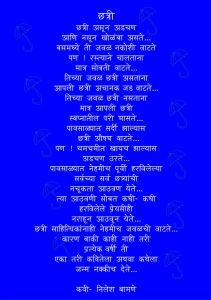 छत्री
छत्री असून अडचण
आणि नसून खोळंबा असते...
बसमध्ये ती जवळ नकोशी वाटते
पण ! रस्त्याने चालताना
मात्र सोबती वाटते...
तिच्या जवळ छत्री असताना
आपली छत्री अचानक जड वाटते...
तिच्या जवळ छत्री नसताना
मात्र आपली छत्री
स्वप्नातील परी भासते...
पावसाळ्यात सर्दी झाल्यास
छत्री औषध वाटते...
पण ! चमचमीत खायच झाल्यास
अडचण ठरते...
पावसाळ्यात नेहमीच पूर्वी हरविलेल्या
सर्वच्या सर्व छत्र्यांची
नचूकता आठवण येते...
त्या आठवणी सोबत कधी- कधी
हरविलेले प्रेमसीही
नसतून आठवून येते...
छत्री साहित्यिकांनाही नेहमीच जवळची वाटते...
कारण बाकी काही नाही तरी
प्रत्येक वर्षी ती
एका तरी कवितेला अथवा कथेला
जन्म नक्कीच देते...
कवी- निलेश बामणे